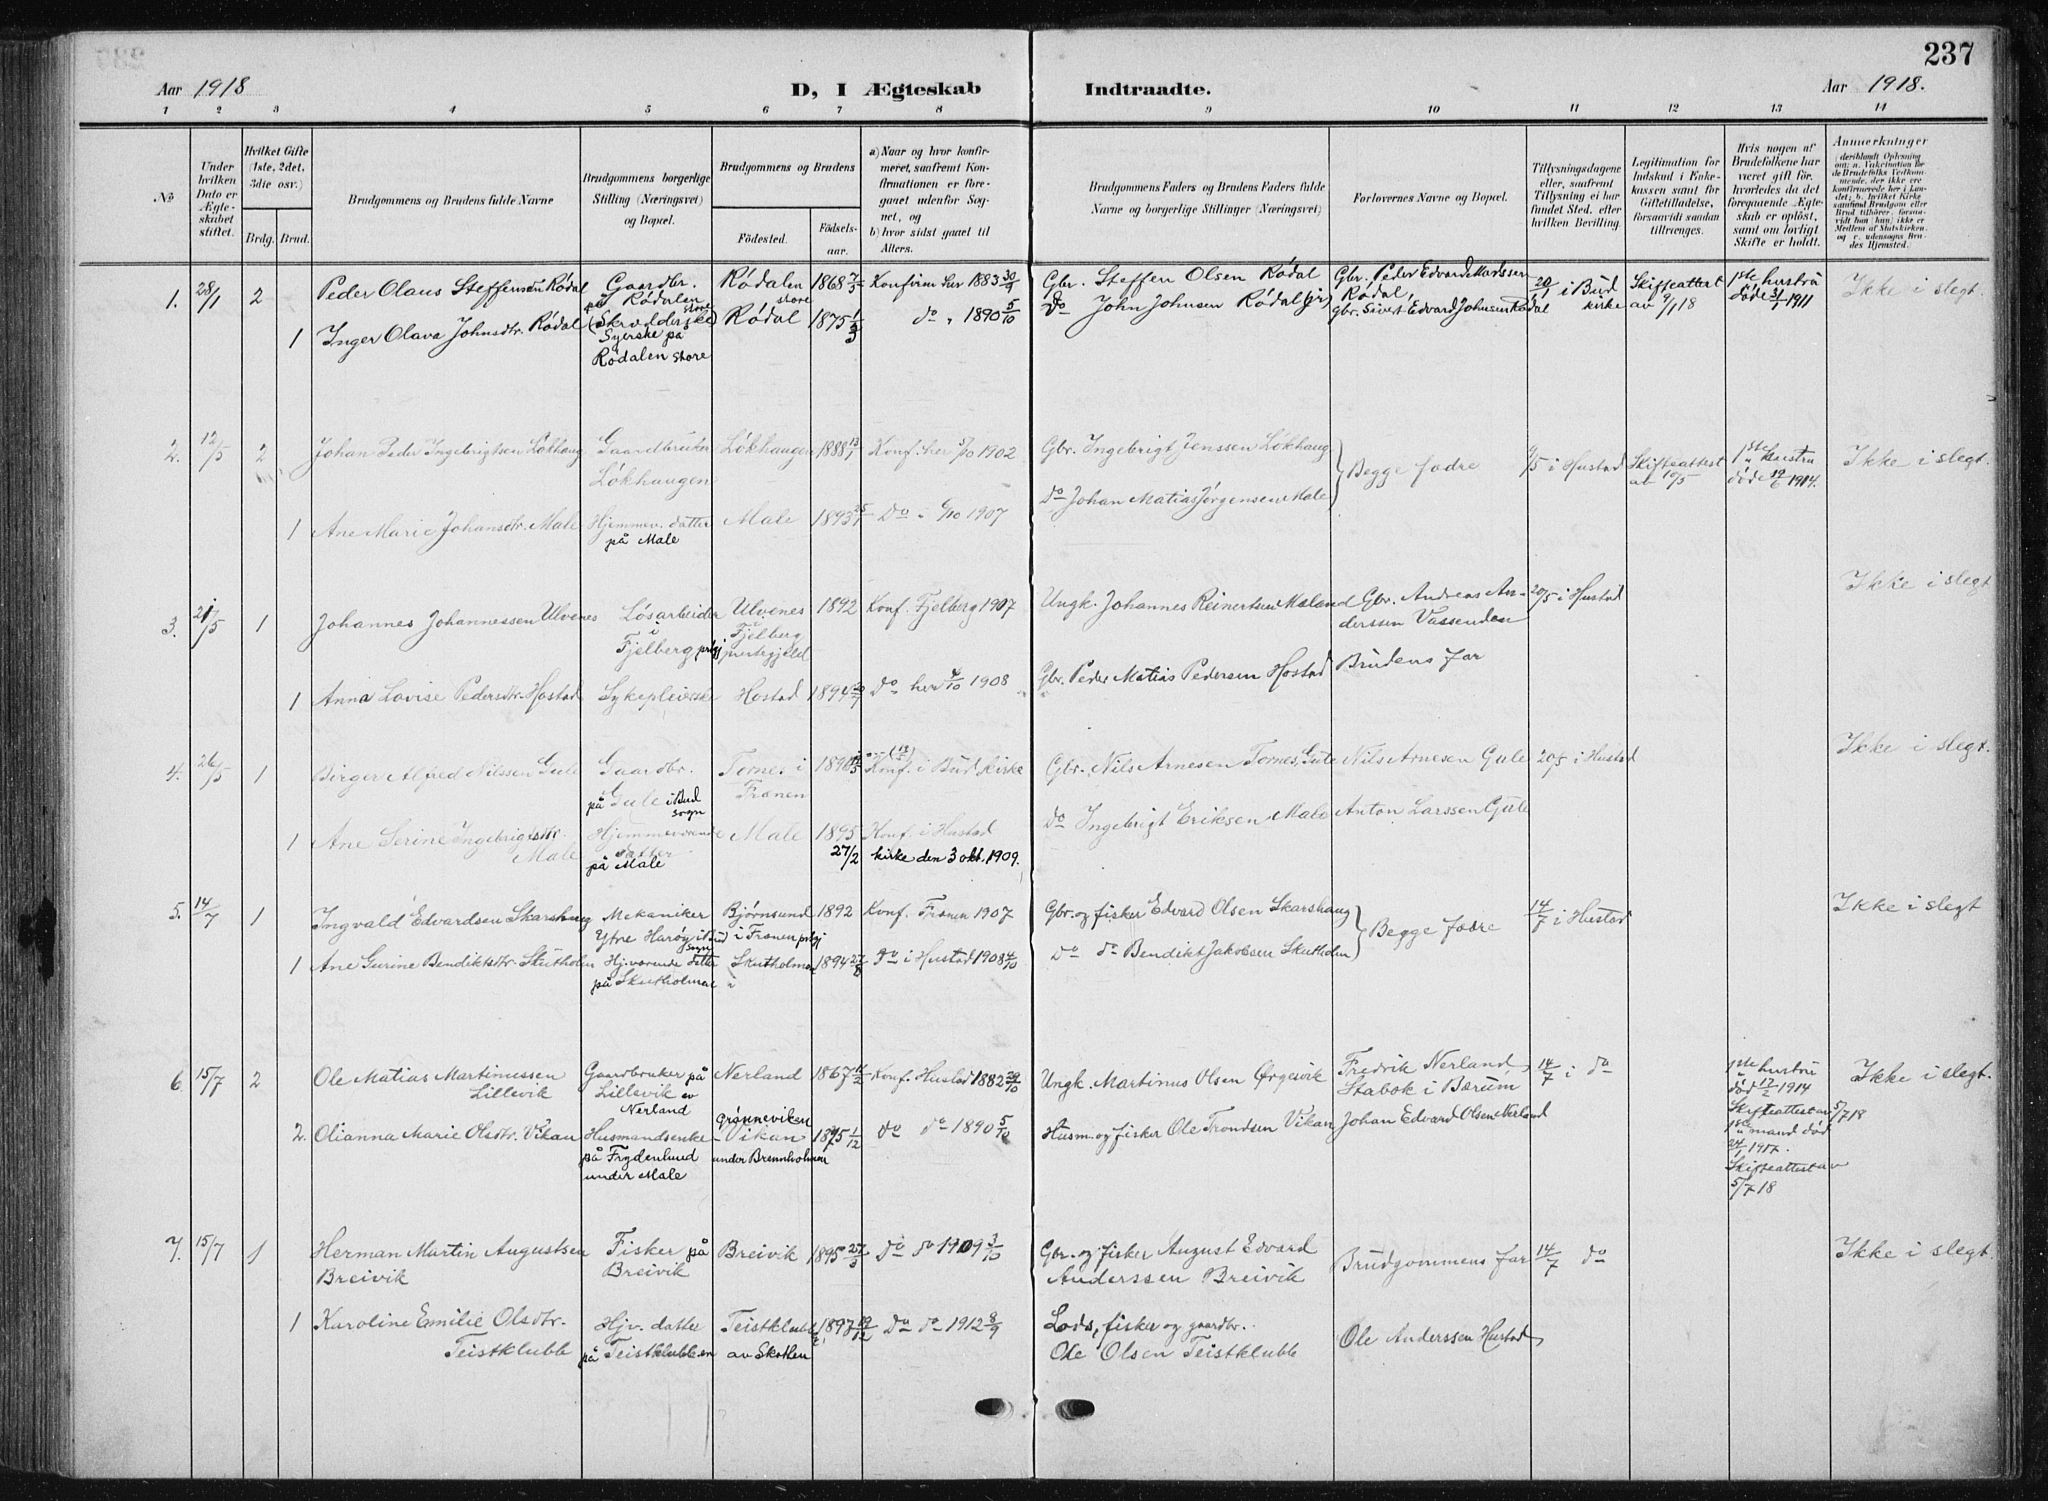 237
Aar 1918
D, I Ægteskab
Indtraadte.
Aar 1918.
1 2 3 4 5 6 7 8 9 10 11 12 13 14
No
Under
hvilken
Dato er
Ægte-
skabet
stiftet.
Hvilket Gifte
(1ste, 2det,
3die osv.)
Brdg. Brud.
Brudgommens og Brudens fulde Navne
Brudgommens borgerlige
Stilling (Næringsvei)
og Bopæl.
Brudgommens og Brudens
Fødested.
Fødsels-
aar.
a) Naar og hvor konfir-
meret, saafremt Kon-
firmationen er fore-
gaaet udenfor Sog-
net, og
b) hvor sidst gaaet til
Alters.
Brudgommens Faders og Brudens Faders fulde
Navne og borgerlige Stillinger (Næringsvei)
Forlovernes Navne og Bopæl.
Tillysningsdagene
eller, saafremt
Tillysning ei har
fundet Sted, efter
hvilken Bevilling.
Legitimation for
Indskud i Enke-
kassen samt for
Giftetilladelse,
forsaavidt saadan
tiltrænges.
Hvis nogen af
Brudefolkene har
været gift før,
hvorledes da det
foregaaende Ægte-
skab er opløst,
samt om lovligt
Skifte er holdt.
Anmærkninger
(deriblandt Oplysning
om: a. Vakcination for
de Brudefolks Vedkom-
mende, der ikke ere
konfirmerede her i Lan-
det; b. hvilket Kirke-
samfund Brudgom eller
Brud tilhører, forsaa-
vidt han (hun) ikke er
Medlem af Statskirken,
og c. udensogns Bru-
des Hjemsted.
1. 28/1 2 Peder Olaus Steffensen Rødal
Gaardbr.
på Rødalen
store
Rødalen
store
1868 7/5
Konfirm. her 1883 30/9
Gbr. Steffen Olsen Rødal
Gbr. Peder Edvard Madssen
Rødal,
20/1 i Bud
kirke
Skifteattest
av 9/1 18
1ste hustru
døde 31/7 1911
Ikke i slegt
1 Inger Olava Johnsdtr. Rødal
(Skrædderske)
Syerske på
Rødalen store
Rødal
1875 1/3
do " 1890 5/10
do John Johnsen Rødal (jr)
Gbr. Sivert Edvard Johnsen Rødal
2. 12/5 2 Johan Peder Ingebrigtsen Løkhaug
Gaardbruker
Løkhaugen
Løkhaugen
1888 13/1
Konf. her 5/10 1902
Gbr. Ingebrigt Jenssen Løkhaug
Begge fædre
9/5 i Hustad
Skifteattest
av 10/5
1ste hustru
døde 19/6 1914.
Ikke i slegt.
1 Ane Marie Johansdtr. Male
Hjemmev. datter
på Male
Male
1893 25/1
Do " 6/10 1907
do Johan Matias Jørgensen Male
3. 21/5 1 Johannes Johannessen Ulvenes
Løsarbeider
i
Fjelberg prgj
Ulvenes
i
Fjelberg
prestegjeld
1892
Konf. Fjelberg 1907
Ungk. Johannes Reinertsen Mæland
Gbr. Andreas An-
derssen Vassenden
20/5 i Hustad
Ikke i slegt
1 Anna Lovise Pedersdtr. Hostad
Sykepleierske
Hostad
1894 20/7
do her 4/10 1908
Gbr. Peder Matias Pedersen Hostad
Brudens far
4. 26/5 1 Birger Alfred Nilssen Gule
Gaardbr.
på Gule i Bud
sogn
Tornes i
Frænen
Konf. i Bud kirke
Gbr. Nils Arnesen Tornes, Gule
Nils Arnesen Gule
20/5 i Hustad
Ikke i slegt.
1 Ane Serine Ingebrigtsdtr.
Male
Hjemmeværende
datter
på Male
Male
1895
27/2
Konf. i Hustad
kirke den 3 okt. 1909.
do Ingebrigt Eriksen Male
Anton Larssen Gule
5. 14/7 1 Ingvald Edvardsen Skarshaug
Mekaniker
Ytre Harøy i Bud
sogn
Bjørnsund
i Frænen prgj
1892
Konf. Frænen 1907
Gbr. og fisker Edvard Olsen Skarshaug
Begge fædre
14/7 i Hustad
Ikke i slegt
1 Ane Gurine Bendiktsdtr. Skutholm
Hjv. værende datter
på Skutholmen
Skutholmen
1894 27/8
Do i Hustad 1908 4/10
do do Bendikt Jakobsen Skutholm
6 15/7 2 Ole Matias Martinussen
Lillevik
Gaardbruker på
Lillevik av
Nerland
Nerland
1867 11/2
Konf. Hustad 1882 29/10
Ungk. Martinus Olsen Ørgesvik
Fredrik Nerland,
Stabæk i Bærum
14/7 i do
1ste hustru
død 17/2 1914
Skifteattest av 5/7 18
Ikke i slegt.
2. Olianna Marie Olsdtr. Vikan
Husmandsenke
på Frydenlund
under Male
Grønneviken
- Vikan
under Brennholmen
1875 1/12
do do 1890 5/10
Husm. og fisker Ole Trondsen Vikan
Johan Edvard Olsen Nerland
1ste mand død
24/1 1917.
Skifteattest av
5/7 18
7. 15/7 1 Herman Martin Augustsen
Breivik
Fisker på
Breivik
Breivik
1895 27/3
Do do 1909 3/10
Gbr. og fisker August Edvard
Anderssen Breivik
Brudgommens far
14/7 do
Ikke i slegt.
1 Karoline Emilie Olsdtr.
Teistklubb
Hjv. datter
på Teistklubben
Teistklubb
av Skothen
1897 19/12
Do do 1912 8/9
Lods, fisker og gaardbr.
Ole Olsen Teistklubb
Ole Anderssen Hustad